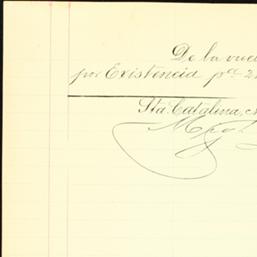 De la vuel
por Existencia pª 2
Sta. Catalina,